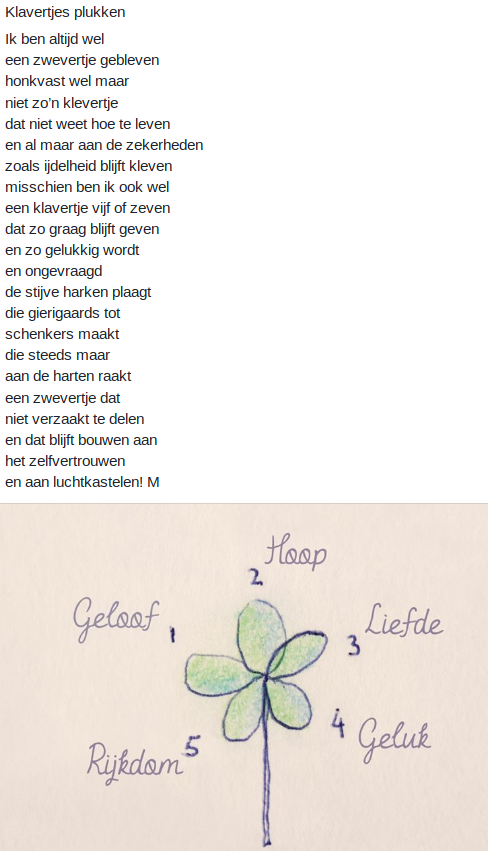 Klavertjes plukken
Ik ben altijd wel
een zwevertje gebleven
honkvast wel maar
niet zo’n klevertje
dat niet weet hoe te leven
en al maar aan de zekerheden
zoals ijdelheid blijft kleven
misschien ben ik ook wel
een klavertje vijf of zeven
dat zo graag blijft geven
en zo gelukkig wordt
en ongevraagd
de stijve harken plaagt
die gierigaards tot
schenkers maakt
die steeds maar
aan de harten raakt
een zwevertje dat
niet verzaakt te delen
en dat blijft bouwen aan
het zelfvertrouwen
en aan luchtkastelen! M
Hoop
2
Geloof
1
Liefde
3
4
Geluk
5
Rijkdom